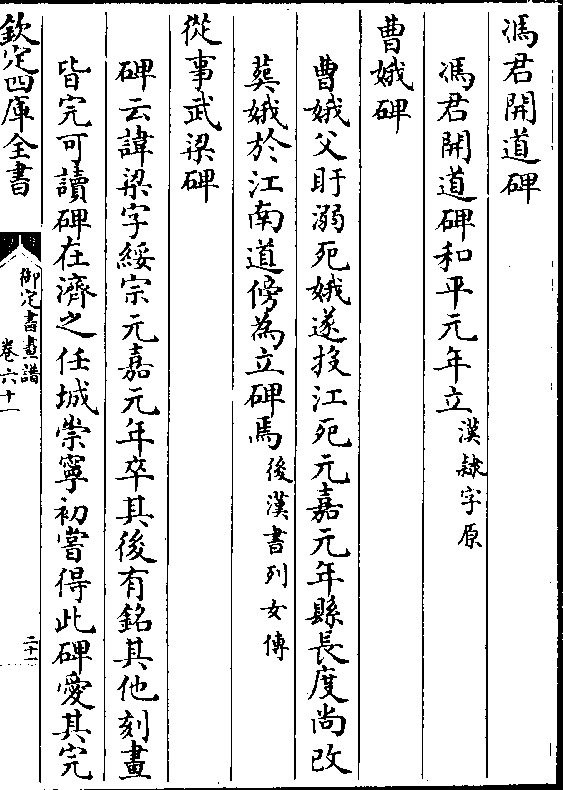 馮君開道碑
馮君開道碑和平元年立漢隸字原
曹娥碑
曹娥父盱溺死娥遂投江死元嘉元年縣長度尚改
葬娥於江南道傍為立碑焉後漢書列女傳
從事武梁碑
碑云諱梁字綏宗元嘉元年卒其後有銘其他刻畫
皆完可讀碑在濟之任城崇寧初嘗得此碑愛其完
欽定四庫全書
御定書畫譜
卷六十一
二十一